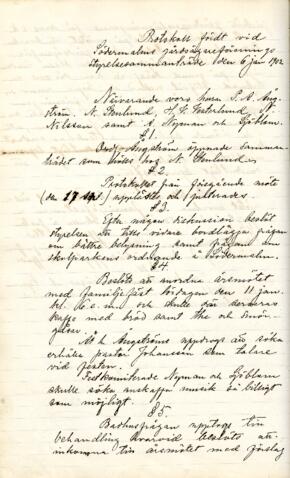 Protokoll fördt vid
Södermalms gårdsegareförenings
styrelsesammanträde den 6 jan 1902
Närvarande voro herrar P. A. Ång-
ström, N. Stenlund, H. G. Vesterlund
Nilsson samt A. Nyman och Sjöblom.
§ 1.
Ordf. Ångström öppnade samman-
trädet som hölls hos N. Stenlund
§ 2.
Protokollet från föregående möte
(den 17) upplästes och justerades.
§ 3.
Efter någon diskussion beslöt
styrelsen att tills vidare bordlägga frågan
om bättre belysning samt frågan om
skolparkens ordnande å Södermalm.
§ 4.
Beslöts att anordna årsmötet
med familjefäst lördagen den 11 jan.
kl. 6 e.m. och skulle för deltagare
kaffe med bröd samt the och smör-
gåsar.
Åt h. Ångström uppdrogs att söka
erhålla pastor Johansson som talare
vid festen.
Festkomiterade Nyman och Sjöblom
skulle söka anskaffa musik så billigt
som möjligt.
§ 5.
Badhusfrågan upptogs till
behandling hvarvid beslöts att
inkomma till årsmötet med förslag